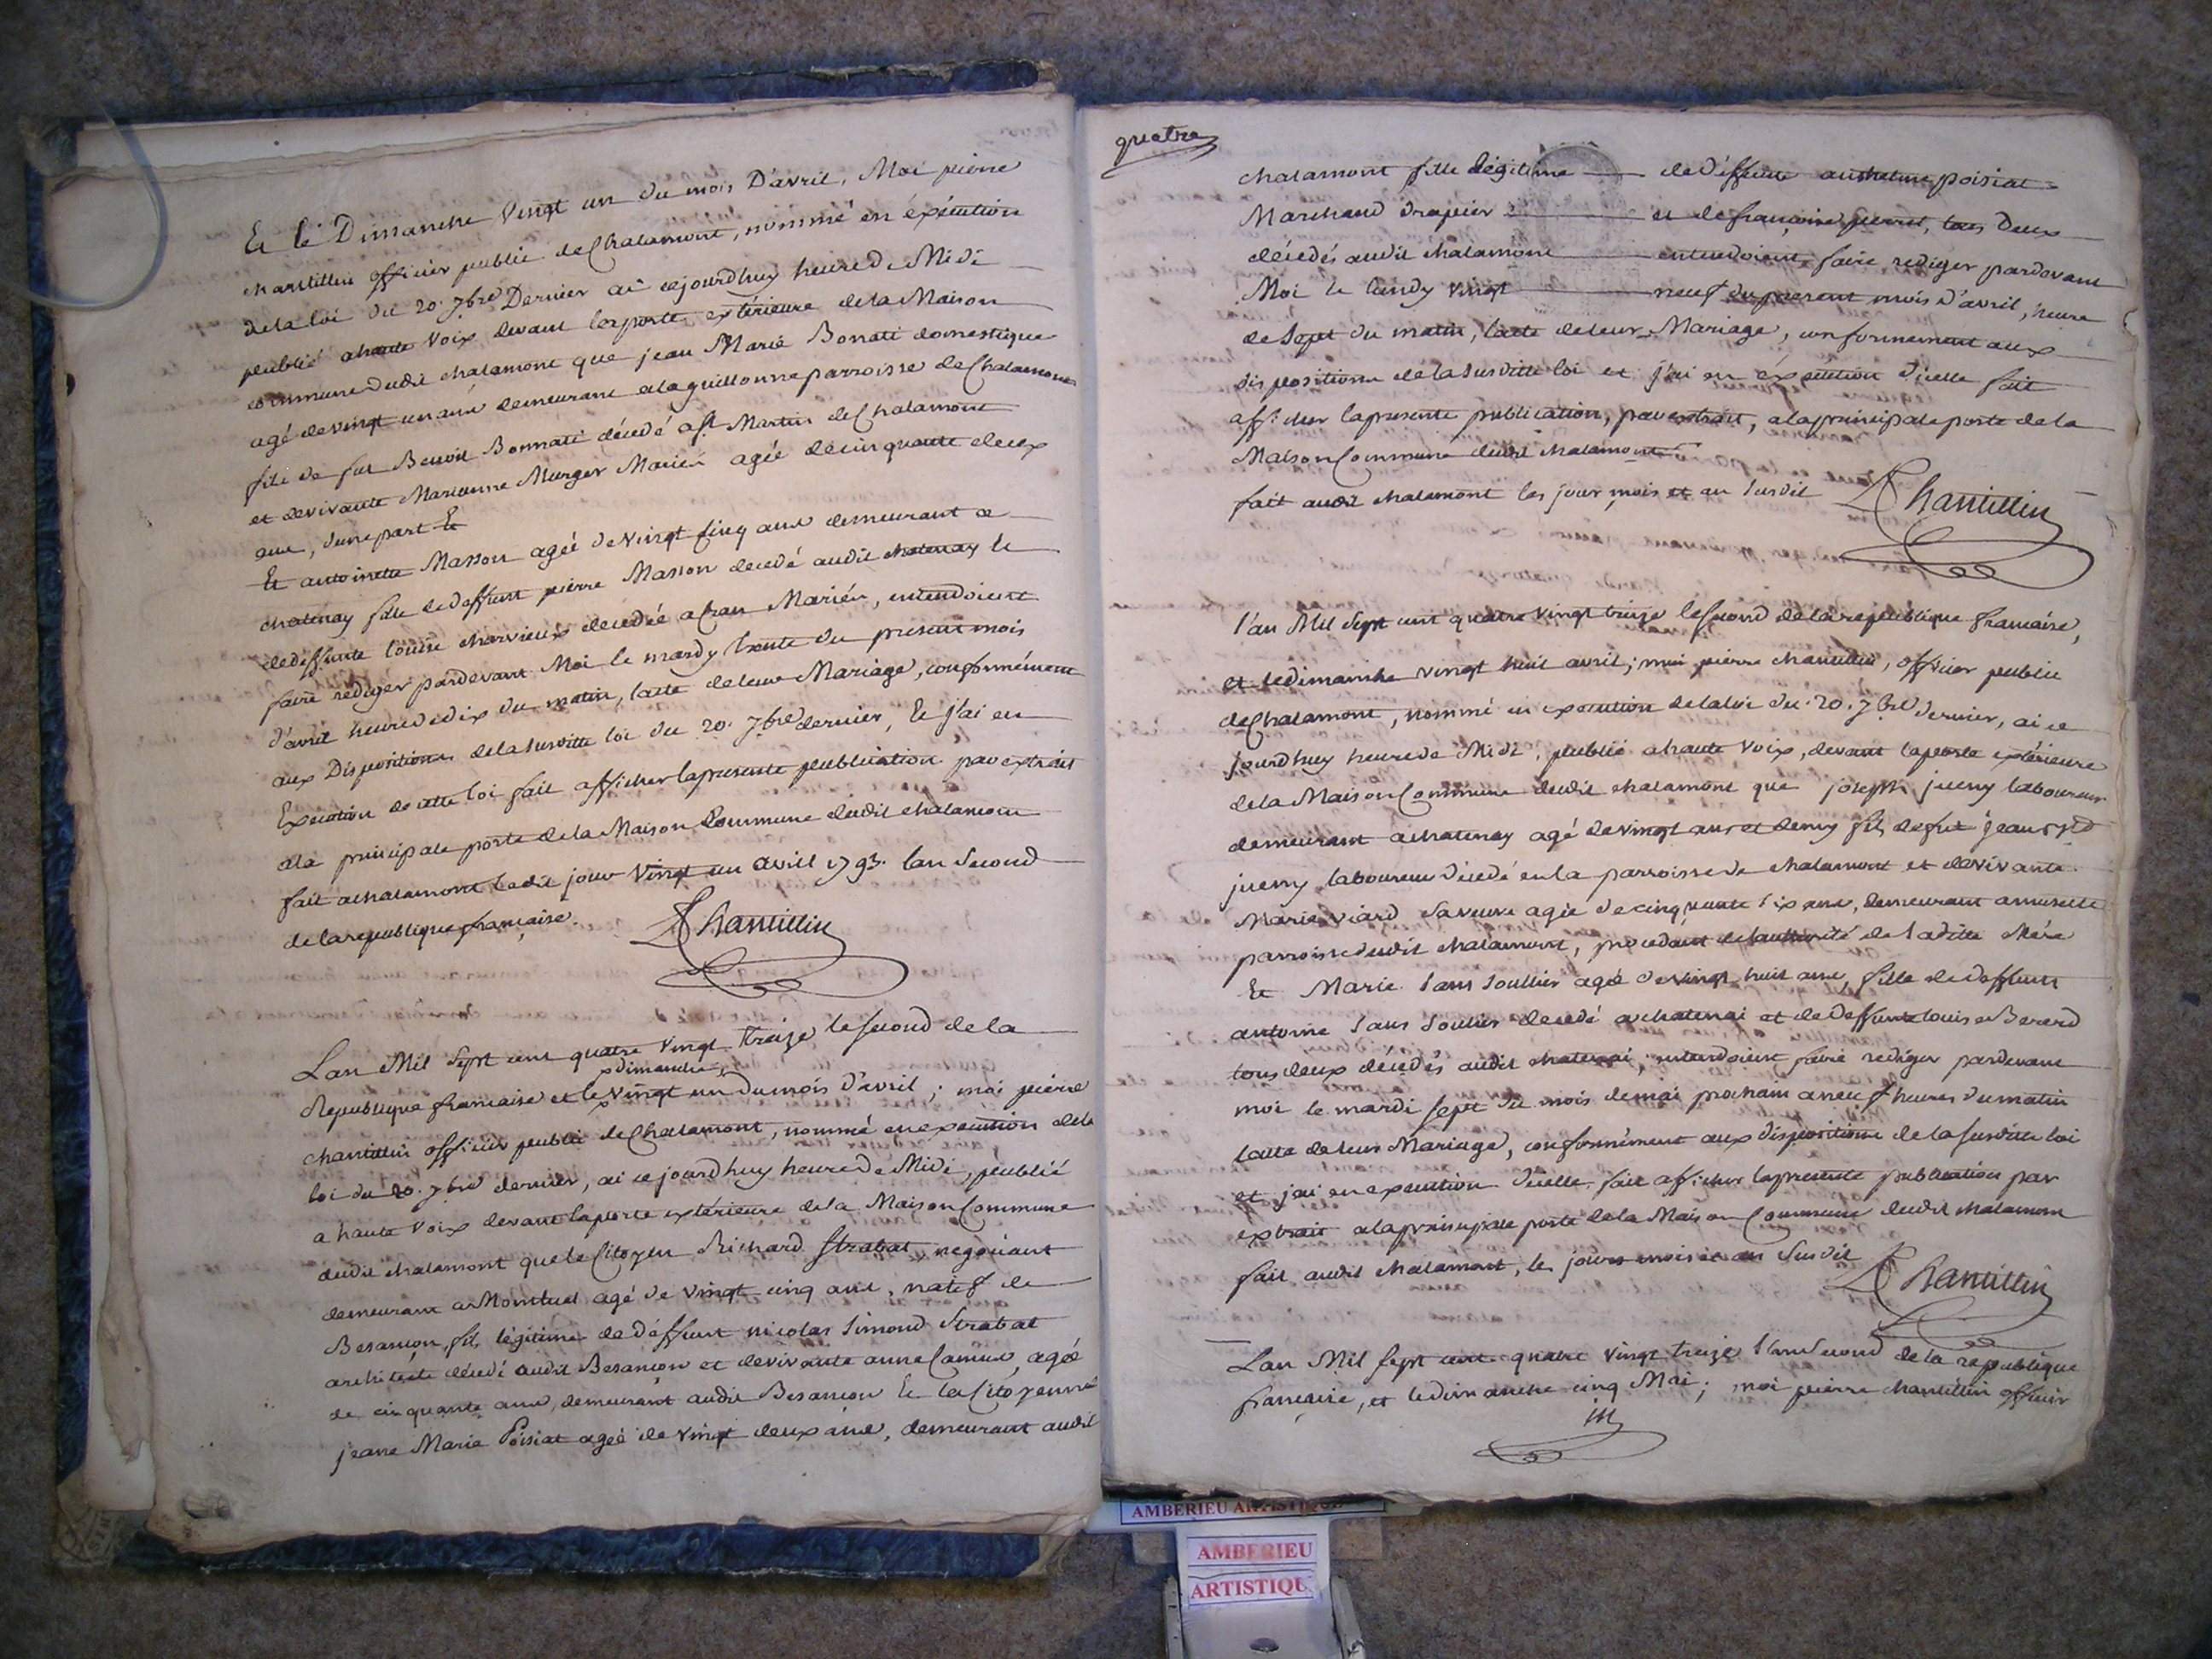 Et le Dimanche Vingt un du mois D'avril, Moi pierre
chantillin officier public de Chalamont, nommé en éxécution
de la loi du 20. 7bre Dernier ai cejourdhuy heure de Midi
publié a haute Voix devant la porte extérieure de la Maison
commune dudit chalamont que jean Marie Bonnati domestique
agé de vingt un ans demeurant a la guillonne parroisse de Chalamont
fils de feu Benoit Bonnati décédé a St Martin de Chalamont
et de vivante Marianne Murger Mariés agée de cinquante deux
ans, d'une part Et
Et antoinette Masson agée de Vingt cinq ans demeurant a
chatenay fille de deffunt pierre Masson decedé audit chatenay et
de deffunte louise charvieux decedée a Cran Mariés, entendoient
faire rediger pardevant Moi le mardy trente du present mois
d'avril heure de dix du matin, lacte de leur Mariage, conformément
aux Dispositions de la susditte loi du 20. 7bre dernier, Et j'ai en
Execution de cette loi fait afficher la presente publication par extrait
a la principale porte de la Maison Commune dudit chalamont
fait a chalamont ledit jour Vingt un avril 1793. lan Second
de la republique française.
PChantillin
Lan Mil Sept cent quatre Vingt Treize le second de la
x dimanche
Republique francaise et le x Vingt un du mois d'avril ; moi pierre
chantillin officier public de Chalamont, nommé en execution de la
loi du 20. 7bre dernier, ai ce jourdhuy heure de Midi, publié
a haute Voix devant la porte extérieure de la Maison Commune
dudit chalamont que le Citoyen Richard Strabat negociant
demeurant a Montluel agé de Vingt cinq ans, natif de
Besancon, fils légitime de déffunt nicolas Simond Strabat
architecte décédé audit Besançon et de vivante anne Camus, agée
de cinquante ans, demeurant audit Besancon Et la Citoyenne
jeane Marie Poisiat agée de Vingt deux ans, demeurant audit
quatre
chalamont fille légitime de déffunt anthelme poisiat
Marchand drapier et de françoise perret, tous deux
décédés audit chalamont entendoient faire rediger pardevant
Moi le lundy vingt neuf du present mois d'avril, heure
de Sept du matin, lacte de leur Mariage, conformement aux
dispositions de la susditte loi et j'ai en éxécution d'icelle fait
afficher la presente publication, par extrait, a la principale porte de la
Maison Commune dudit chalamont
fait audit chalamont les jour, mois et an susdit
PChantillin
l'an Mil Sept cent quatre Vingt treize le second de la republique francaise,
et le dimanche vingt huit avril ; moi pierre chantillin, officier public
de Chalamont, nommé en execution de la loi du 20. 7bre dernier, ai ce
jourdhuy heure de Midi, publié a haute Voix, devant la porte extérieure
de la Maison Commune dudit chalamont que joseph jueny laboureur
demeurant a chatenay agé de vingt ans et demy fils de feu jean
jueny laboureur décédé en la parroisse de chalamont et de vivante
Marie Viard sa veuve agée de cinquante six ans, demeurant
parroisse dudit chalamont, procedant de lauthorité de ladite Mére
Et Marie Sans Soullier agée de vingt huit ans, fille de deffunt
antoine Sans Soulier decedé a chatenai et de deffunte louise Berard
tous deux décédés audit chatenai, entendoient faire rediger pardevant
moi le mardi sept du mois de mai prochain a neuf heures du matin
lacte de leur Mariage, conformément aux dispositions de la susditte loi
et jai en execution d'icelle fait afficher la presente publication par
extrait a la principale porte de la Maison Commune dudit chalamont
fait audit chalamont, les jour mois et an Susdit
PChantillin
Lan Mil Sept cent quatre Vingt Treize l'an second de la republique
française, et le dimanche cinq Mai ; moi pierre chantillin officier
AMBERIEU ARTISTIQUE
AMBERIEU
ARTISTIQU